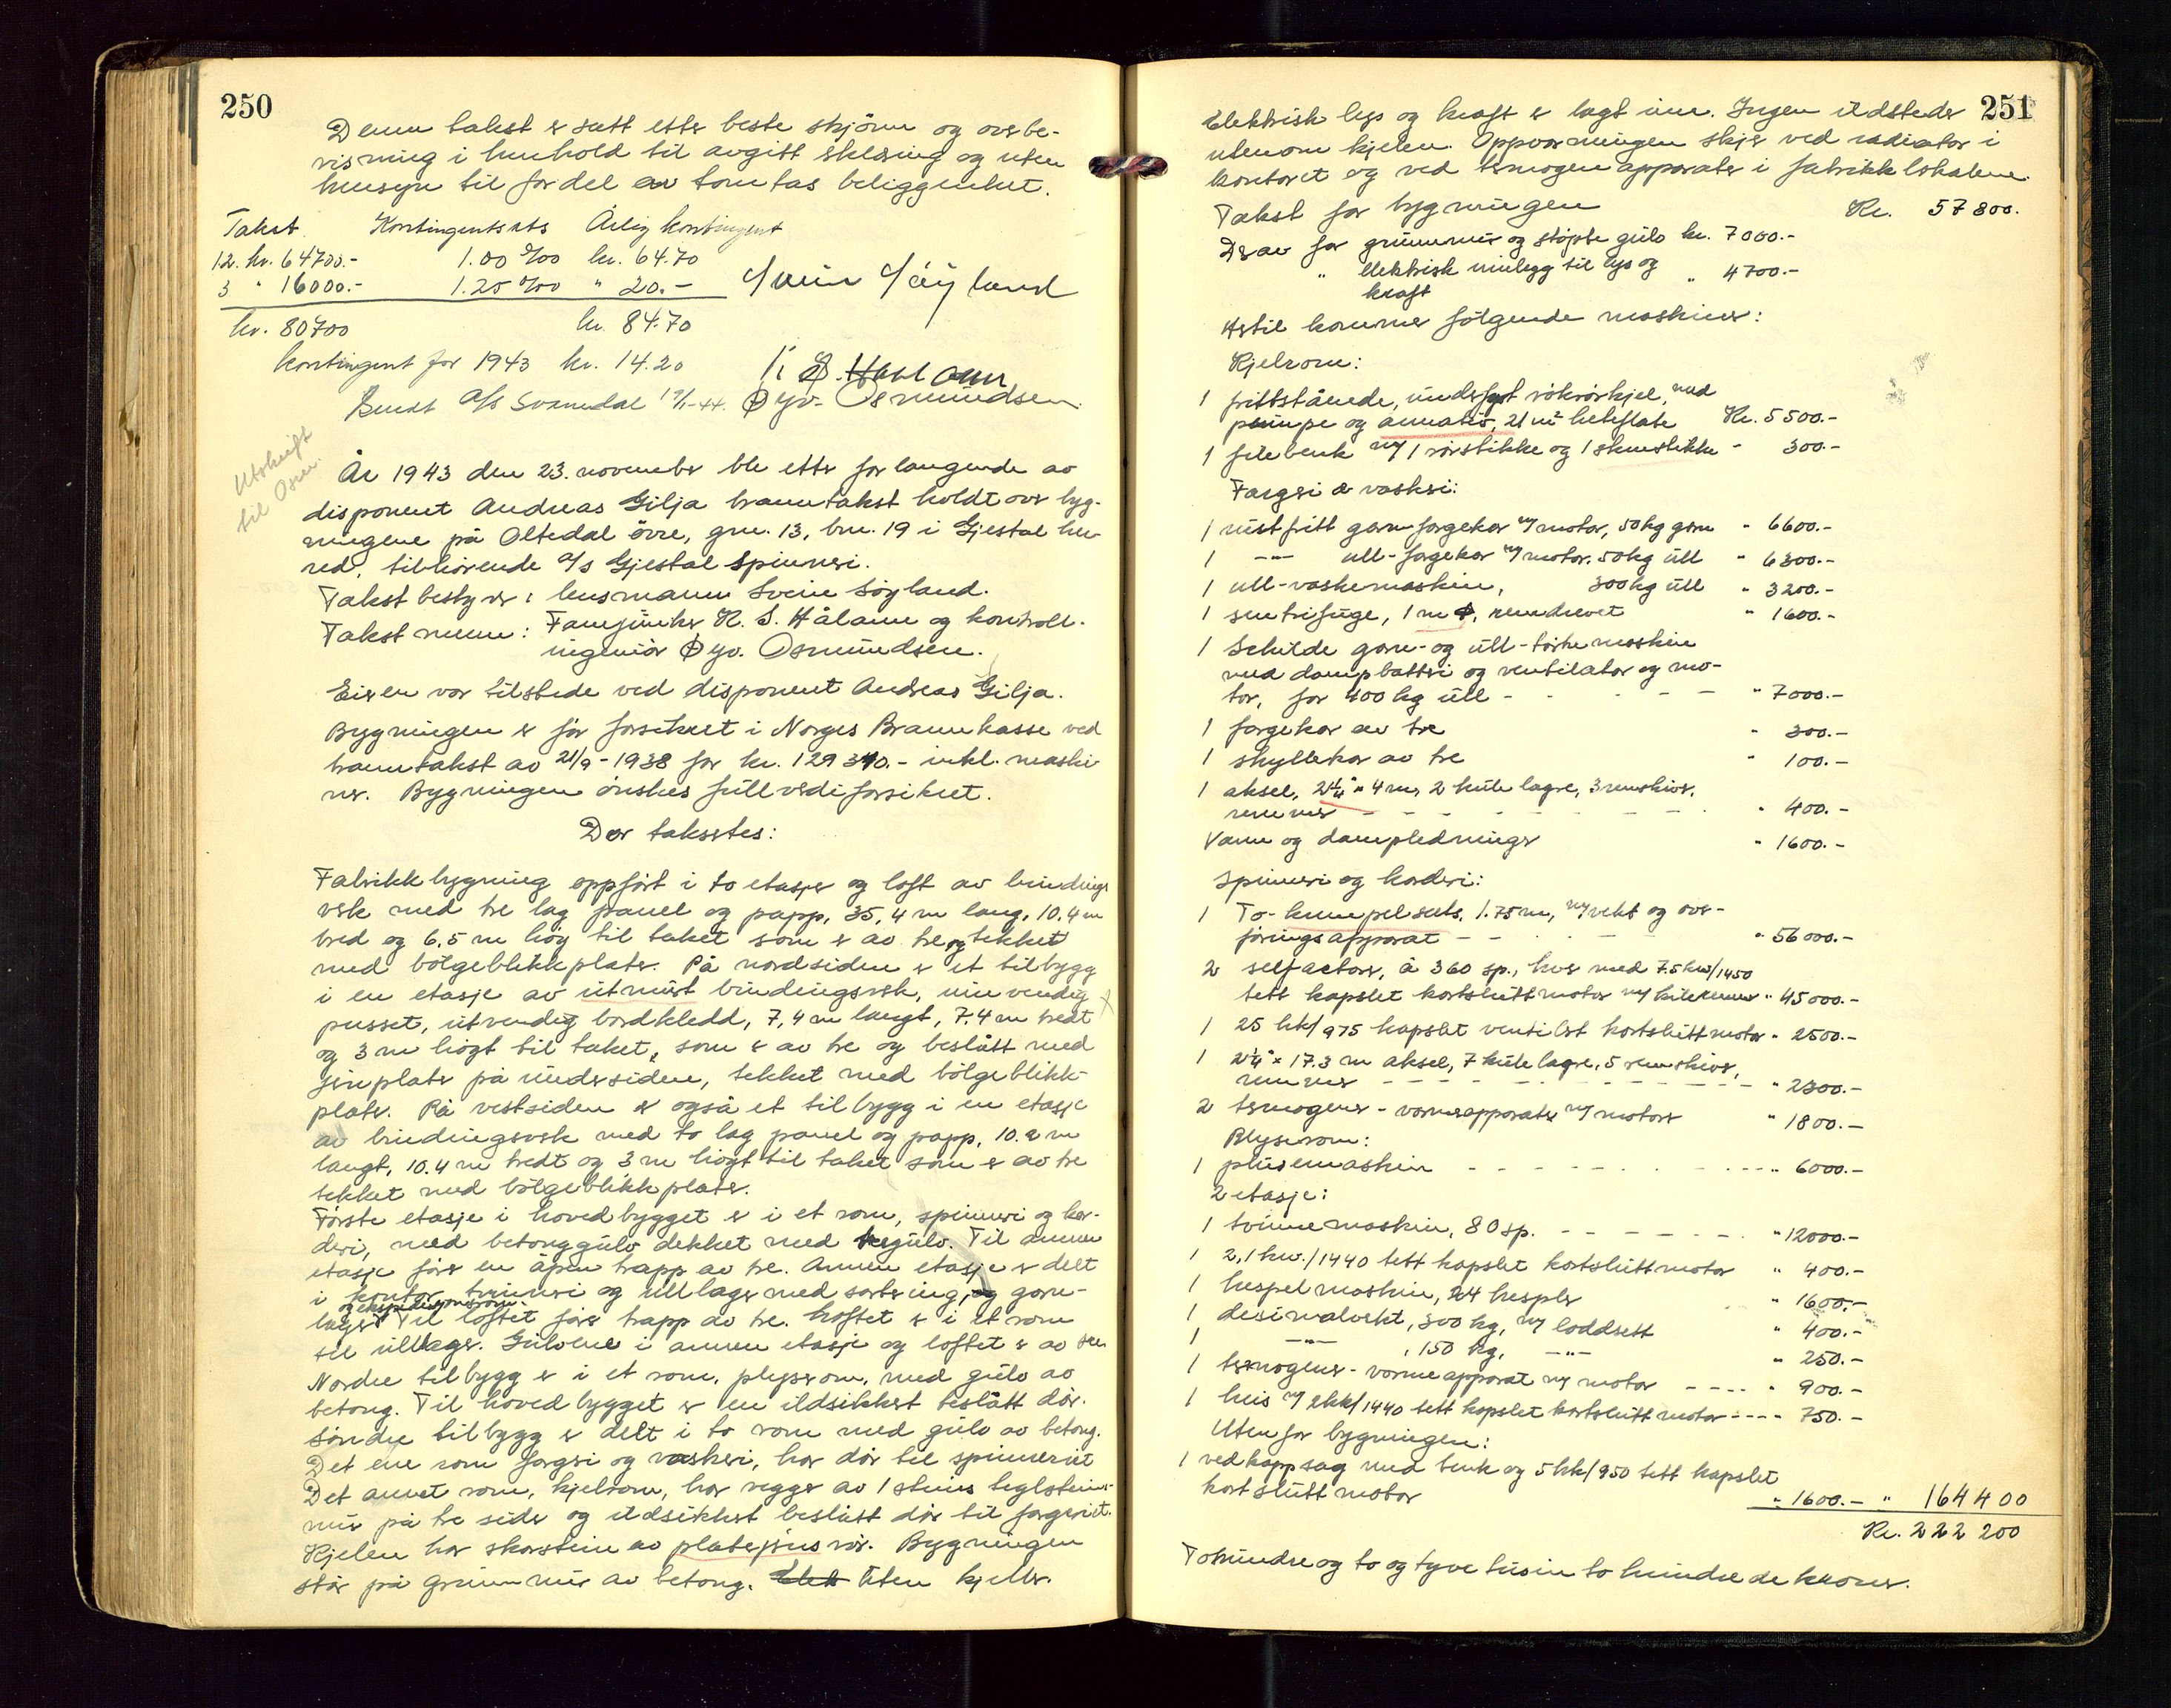 250
Denne takst er satt etter beste skjönn og overbe-
visning i henhold til avgitt erklæring og uten
hensyn til fordel av tomtas beliggenhet.
Takst Kontingentsats Årlig kontingent
12. kr. 64700.- 1.00 ‰ kr. 64.70
3 " 16000.- 1.25 ‰ " 20.-
kr. 80700 kr. 84.70
Svein Söyland
Kontingent for 1943 kr. 14.20
K S. Håland
Sendt A/S Svanedal 17/1-44. Øyv. Osmundsen.
Utskrift
til Osm.
År 1943 den 23. november ble etter forlangende av
disponent Andreas Gilja branntakst holdt over byg-
ningene på Oltedal övre, gnr. 13, bnr. 19 i Gjestal her-
red, tilhörende A/S Gjestal Spinneri.
Takstbestyrer: lensmann Svein Söyland.
Takstmenn: Fanejunker K. S. Håland og kontroll-
ingeniör Øyv. Osmundsen.
Eieren var tilstede ved disponent Andreas Gilja.
Bygningen er för forsikret i Norges Brannkasse ved
branntakst av 21/9-1938 for kr. 129340.- inkl. maski-
ner. Bygningen önskes fullverdiforsikret.
Der taksertes:
Fabrikkbygning oppfört i to etasjer og loft av bindings
verk med tre lag panel og papp, 35,4 m lang, 10.4 m
bred og 6.5 m höy til taket som er av tre og tekket
med bölgeblikkplater. På nordsiden er et tilbygg
i en etasje av utmurt bindingsverk, innvendig
pusset, utvendig bordkledd, 7,4 m langt, 7.4 m bredt
og 3 m högt til taket, som er av tre og beslått med
jernplater på undersiden, tekket med bölgeblikk-
plater. På vestsiden er også et tilbygg i en etasje
av bindingsverk med to lag panel og papp, 10.2 m
langt, 10.4 m bredt og 3 m högt til taket som er av tre
tekket med bölgeblikkplater.
Förste etasje i hovedbygget er i et rom, spinneri og kar-
deri, med betonggulv dekket med tregulv. Til annen
etasje förer en åpen trapp av tre. Annen etasje er delt
i kontor, tvinneri og ullager med sortering, og garn-
og ekspedisjonsrom.
lager. Til loftet förer trapp av tre. Loftet er i et rom
til ullager. Gulvene i annen etasje og loftet er av tre.
Nordre tilbygg er i et rom, plyserom, med gulv av
betong. Til hovedbygget er en ildsikkert beslått dör.
Söndre tilbygg er delt i to rom med gulv av betong.
Det ene rom fargeri og vaskeri, har dör til spinneriet
Det annet rom, kjelrom, har vegger av 1 steins teglsteins-
mur på tre sider og ildsikkert beslått dör til fargeriet.
Kjelen har skorstein av platejernsrör. Bygningen
står på grunnmur av betong. Uten kjeller.
251
Elektrisk lys og kraft er lagt inn. Ingen ildsteder
utenom kjelen. Oppvarmingen skjer ved radiator i
kontoret og ved termogenapparater i fabrikklokalene.
Takst for bygningen Kr. 57800.
Derav for grunnmur og stöpte gulv kr. 7000.-
" elektrisk innlegg til lys og
kraft " 4700.-
Hertil kommer fölgende maskiner:
Kjelrom:
1 frittstående, underfyrt rökrörkjel, med
pumpe og armatur, 21 m² heteflate Kr. 5500.-
1 filebenk m/ 1 rörstikke og 1 skruestikke " 300.-
Fargeri & vaskeri:
1 rustfritt garnfargekar m/motor, 50 kg garn " 6600.-
1 -"- ull-fargekar m/motor. 50 kg ull " 6300.-
1 ull-vaskemaskin, 300 kg ull " 3200.-
1 sentrifuge, 1 m Φ, remdrevet " 1600.-
1 Schilde garn- og ull-törkemaskin
med dampbatteri og ventilator og mo-
tor, for 400 kg ull - - - - " 7000.-
1 fargekar av tre " 300.-
1 skyllekar av tre " 100.-
1 aksel, 2¼" x 4 m, 2 kulelagre, 3 remskiver,
remmer - - - - - " 400.-
Vann og dampledninger " 1600.-
Spinneri og karderi:
1 To-krempelsats, 1.75 m, m/vekt og over-
föringsapparat - - - - " 56000.-
2 selfactorer, à 360 sp., hver med 7.5 kw/1450
tett kapslet kortsluttmotor m/kileremmer " 45000.-
1 25 hk/975 kapslet ventilert kortsluttmotor " 2500.-
1 2¼" x 17.3 m aksel, 7 kulelagre, 5 remskiver,
remmer - - - - - - " 2300.-
2 termogener-varmeapparater m/motorer " 1800.-
Plyserom:
1 plysemaskin - - - - - " 6000.-
2 etasje:
1 tvinnemaskin, 80 sp. - - - - - " 12000.-
1 2,1 kw./1440 tett kapslet kortsluttmotor " 400.-
1 hespelmaskin, 24 hespler " 1600.-
1 desimalvekt, 300 kg, m/ loddsett " 400.-
1 -"- , 150 kg, -"- " 250.-
1 termogener-varmeapparat m/ motor - - - - " 900.-
1 heis m/ 2hk/1440 tett kapslet kortsluttmotor - - - - 750.-
Utenfor bygningen:
1 vedkappsag med benk og 5hk/950 tett kapslet
kortsluttmotor " 1600.- " 164400
Kr. 222200
Tohundre og to og tyve tusin to hundrede kroner.